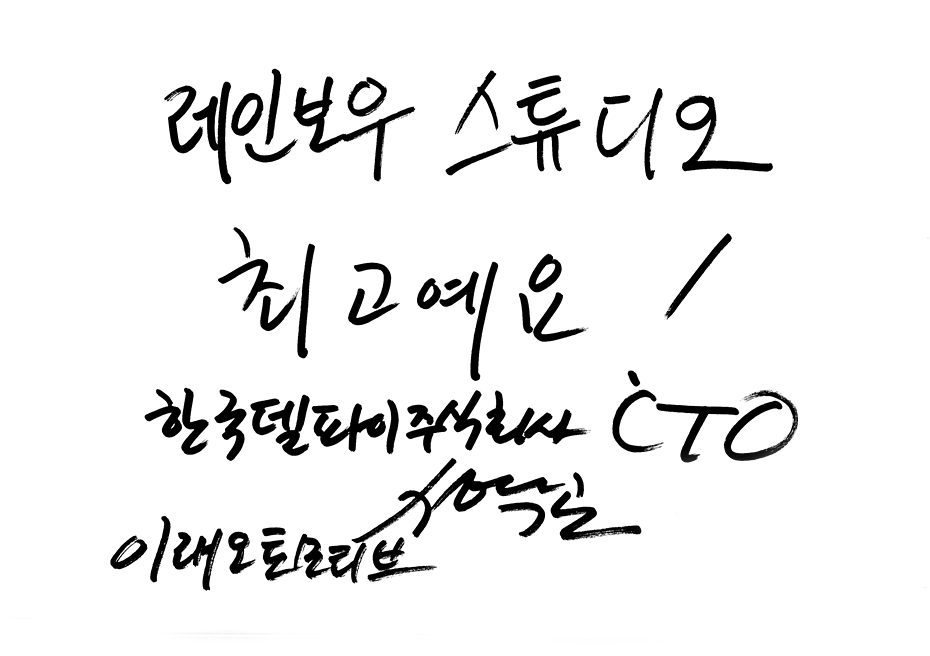 레인보우 스튜디오
최고예요!
한국델파이주식회사 CTO
이래오토모티브